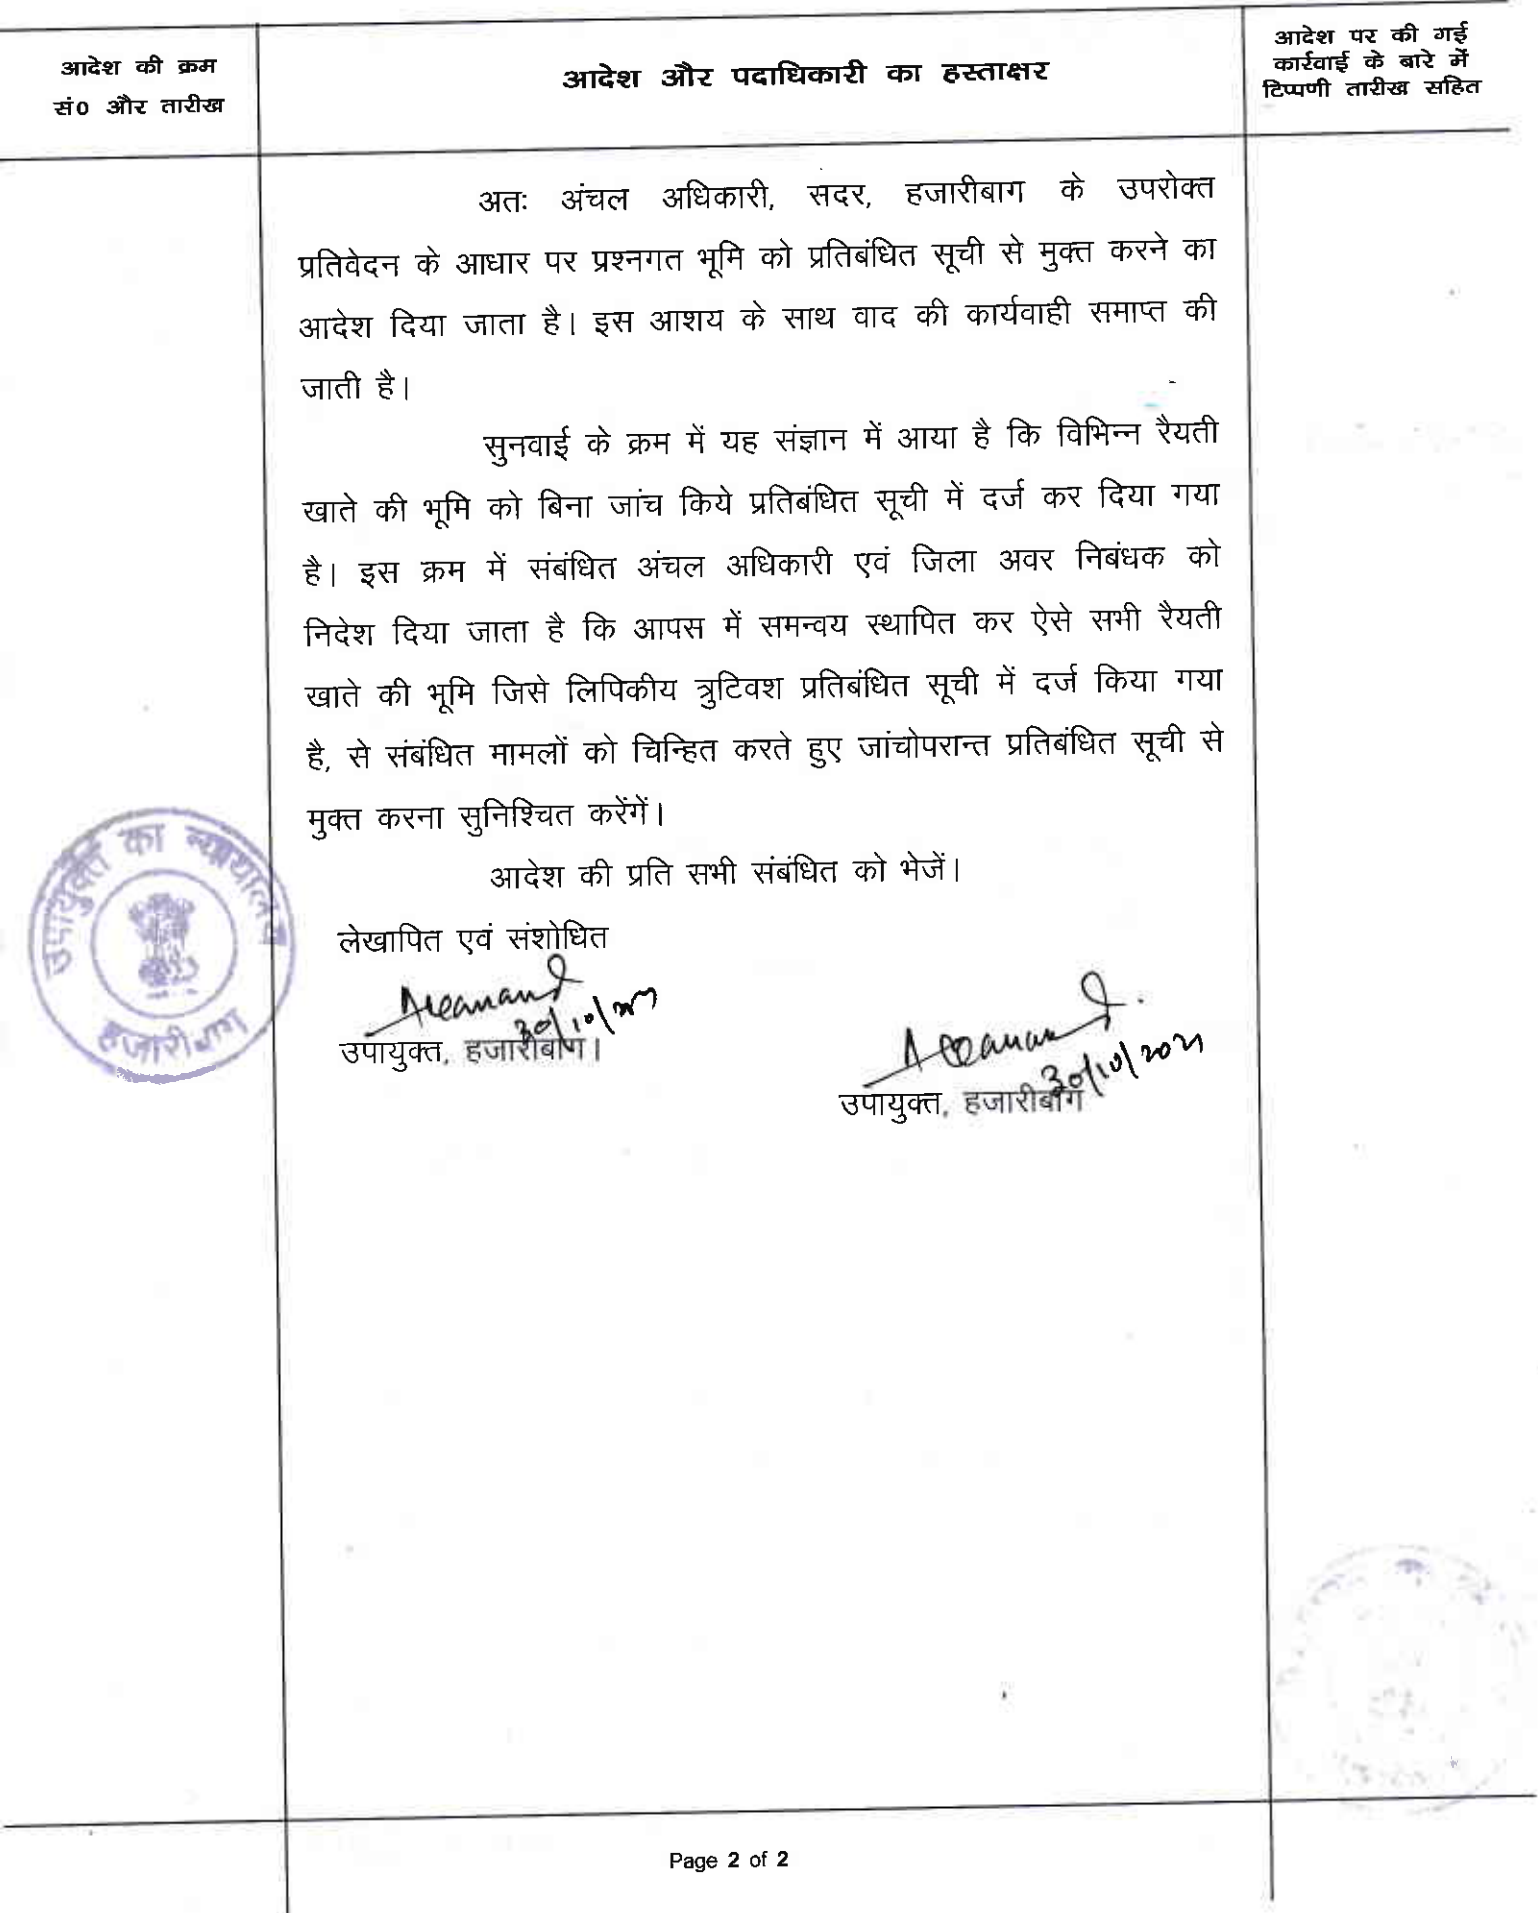 आदेश की क्रम
सं0 और तारीख
आदेश और पदाधिकारी का हस्ताक्षर
आदेश पर की गई
कार्रवाई के बारे में
टिप्पणी तारीख सहित
अतः अंचल अधिकारी, सदर, हजारीबाग के उपरोक्त
प्रतिवेदन के आधार पर प्रश्नगत भूमि को प्रतिबंधित सूची से मुक्त करने का
आदेश दिया जाता है। इस आशय के साथ वाद की कार्यवाही समाप्त की
जाती है।
सुनवाई के क्रम में यह संज्ञान में आया है कि विभिन्न रैयती
खाते की भूमि को बिना जांच किये प्रतिबंधित सूची में दर्ज कर दिया गया
है। इस क्रम में संबंधित अंचल अधिकारी एवं जिला अवर निबंधक को
निदेश दिया जाता है कि आपस में समन्वय स्थापित कर ऐसे सभी रैयती
खाते की भूमि जिसे लिपिकीय त्रुटिवश प्रतिबंधित सूची में दर्ज किया गया
है, से संबंधित मामलों को चिन्हित करते हुए जांचोपरान्त प्रतिबंधित सूची से
मुक्त करना सुनिश्चित करेंगें।
आदेश की प्रति सभी संबंधित को भेजें।
उपायुक्त का न्यायालय
हजारीबाग
लेखापित एवं संशोधित
30/10/
उपायुक्त, हजारीबाग।
30/10/2021
उपायुक्त, हजारीबाग
Page 2 of 2